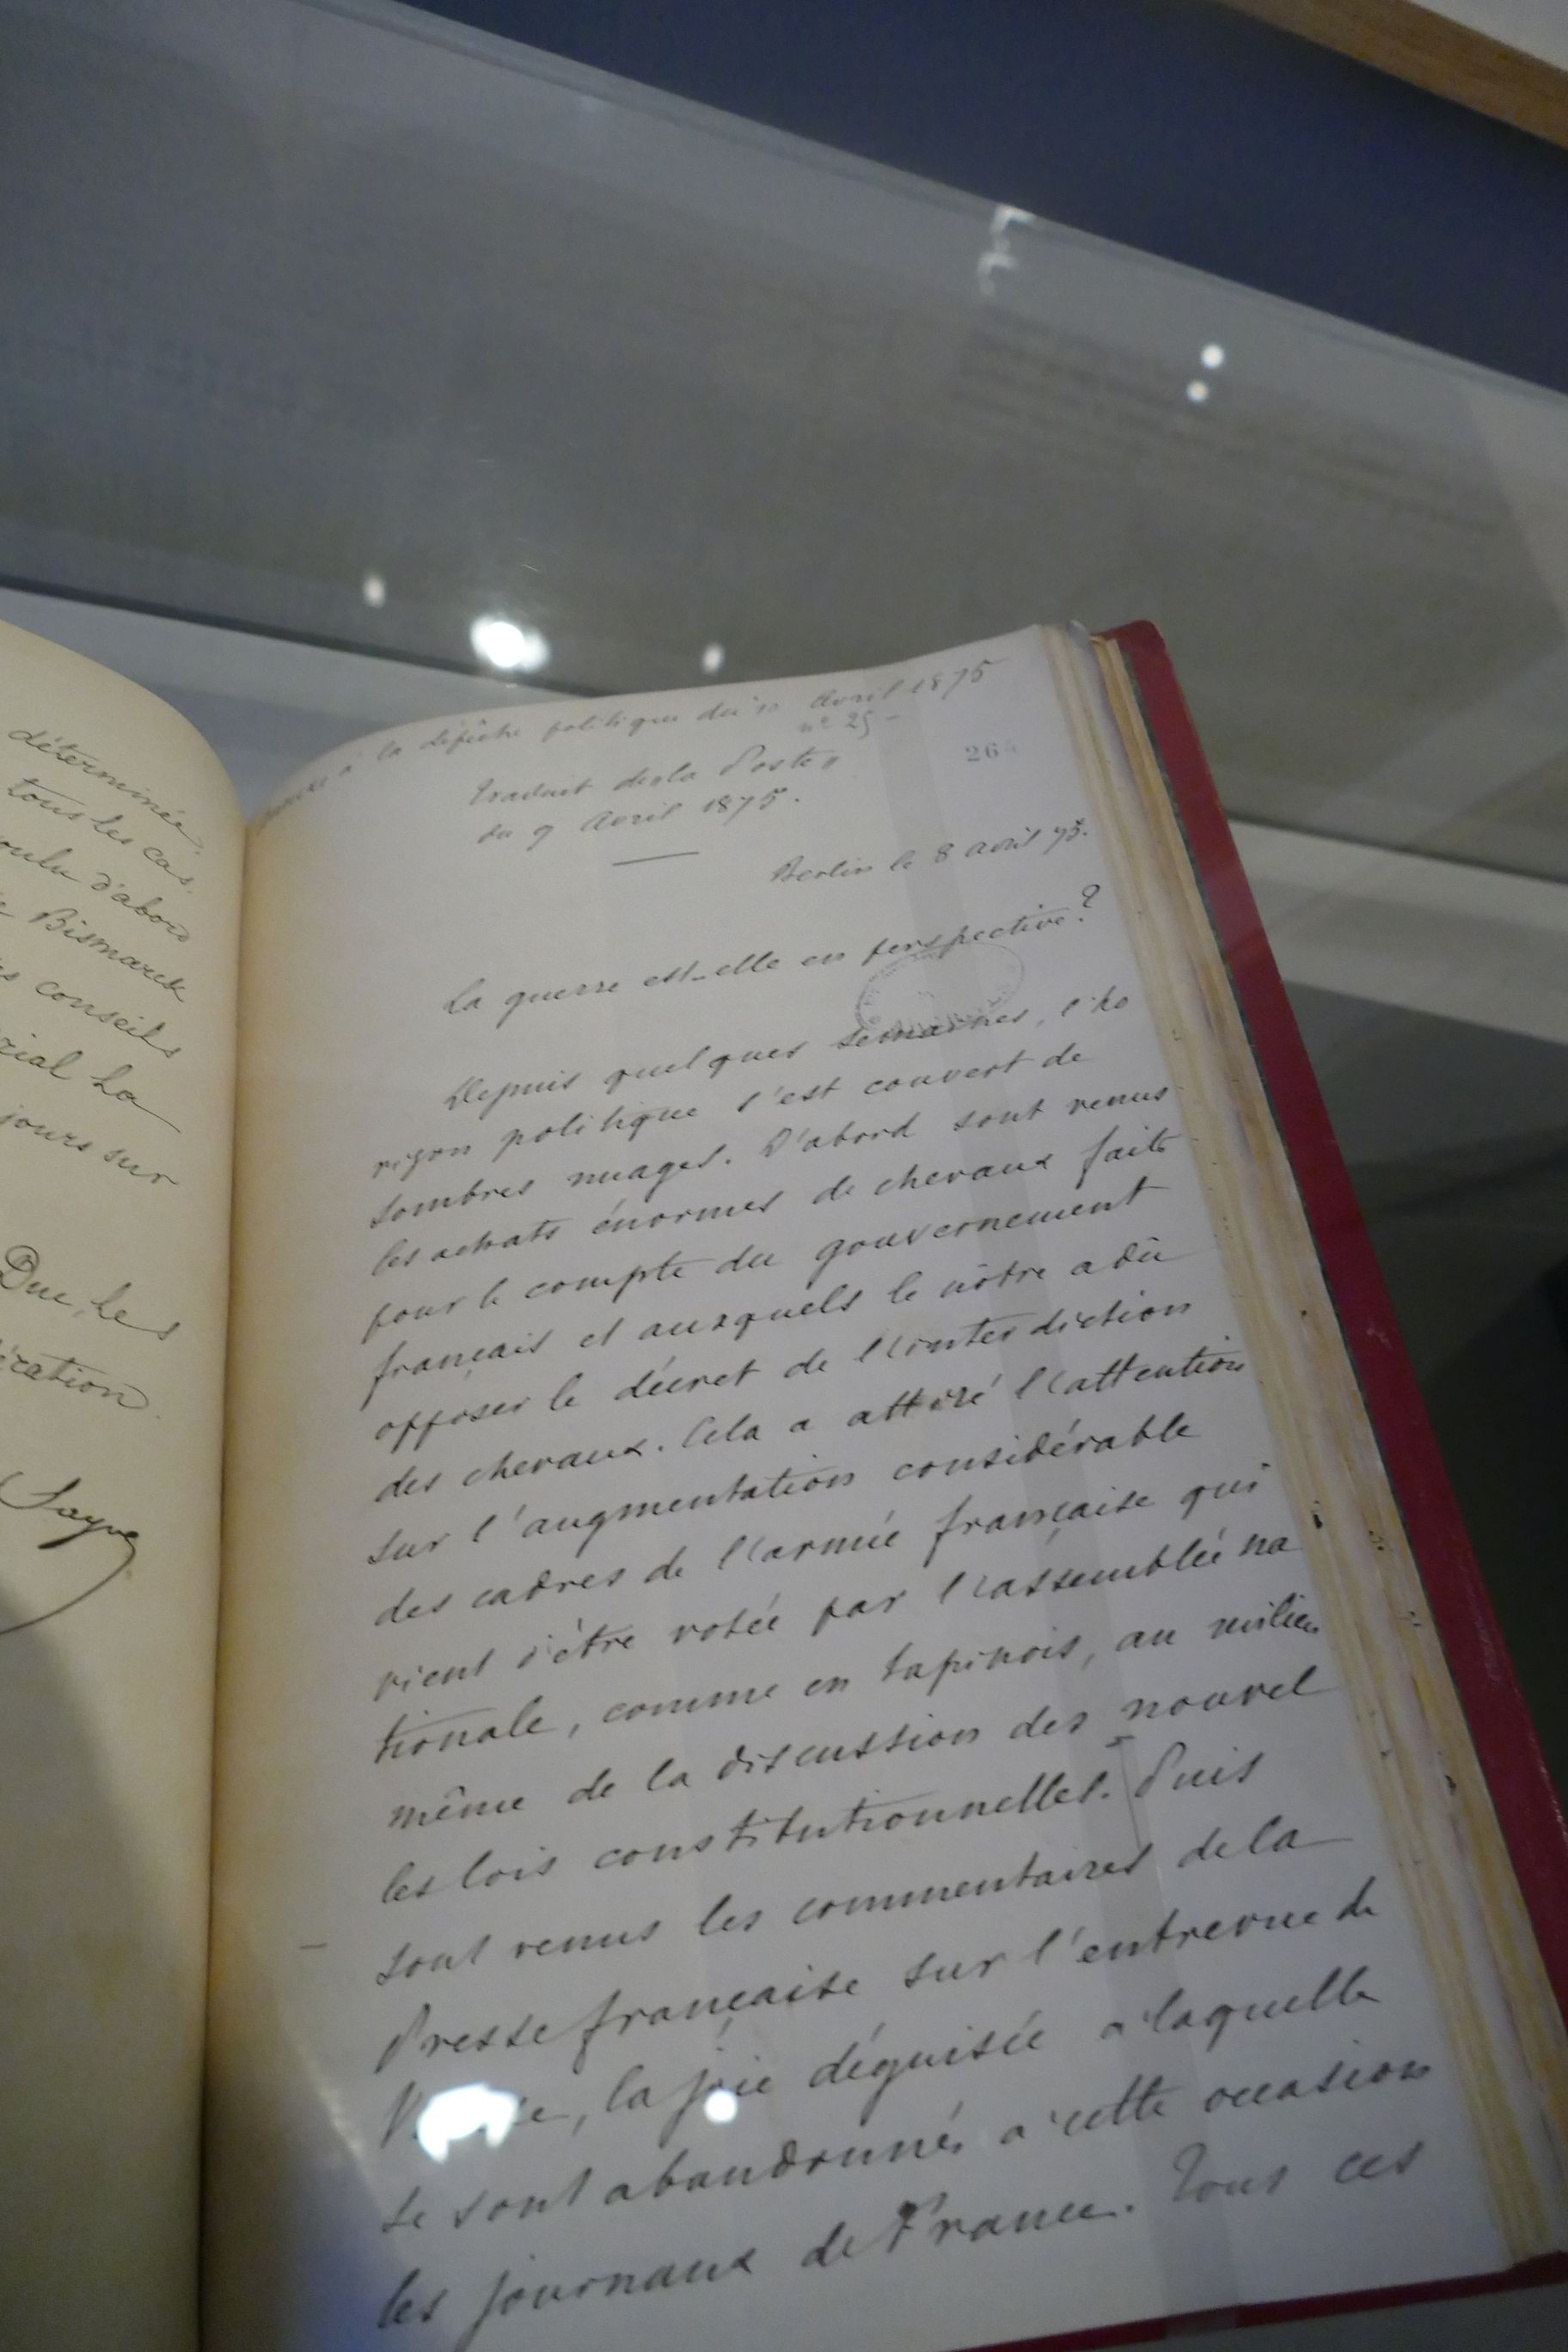 déterminée.
tous les cas.
voulu d'abord
Bismarck
conseils
La
jours sur
Duc, les
Sayve
à la dépêche politique du 10 Avril 1875
n° 25 -
264
Traduit de la Post
du 9 Avril 1875.
Berlin le 8 avril 75.
La guerre est-elle en perspective?
Depuis quelques semaines, l'ho
rizon politique s'est couvert de
sombres nuages. D'abord sont venus
les achats énormes de chevaux faits
pour le compte du gouvernement
français et auxquels le nôtre a dû
opposer le décret de l'interdiction
des chevaux. Cela a attiré l'attention
sur l'augmentation considérable
des cadres de l'armée française qui
vient d'être votée par l'assemblée na
tionale, comme en tapinois, au milieu
même de la discussion des nouvel
les lois constitutionnelles. Puis
sont venus les commentaires de la
Presse française sur l'entrevue de
la joie déguisée à laquelle
se sont abandonnés à cette occasion
les journaux de France. Tous ces